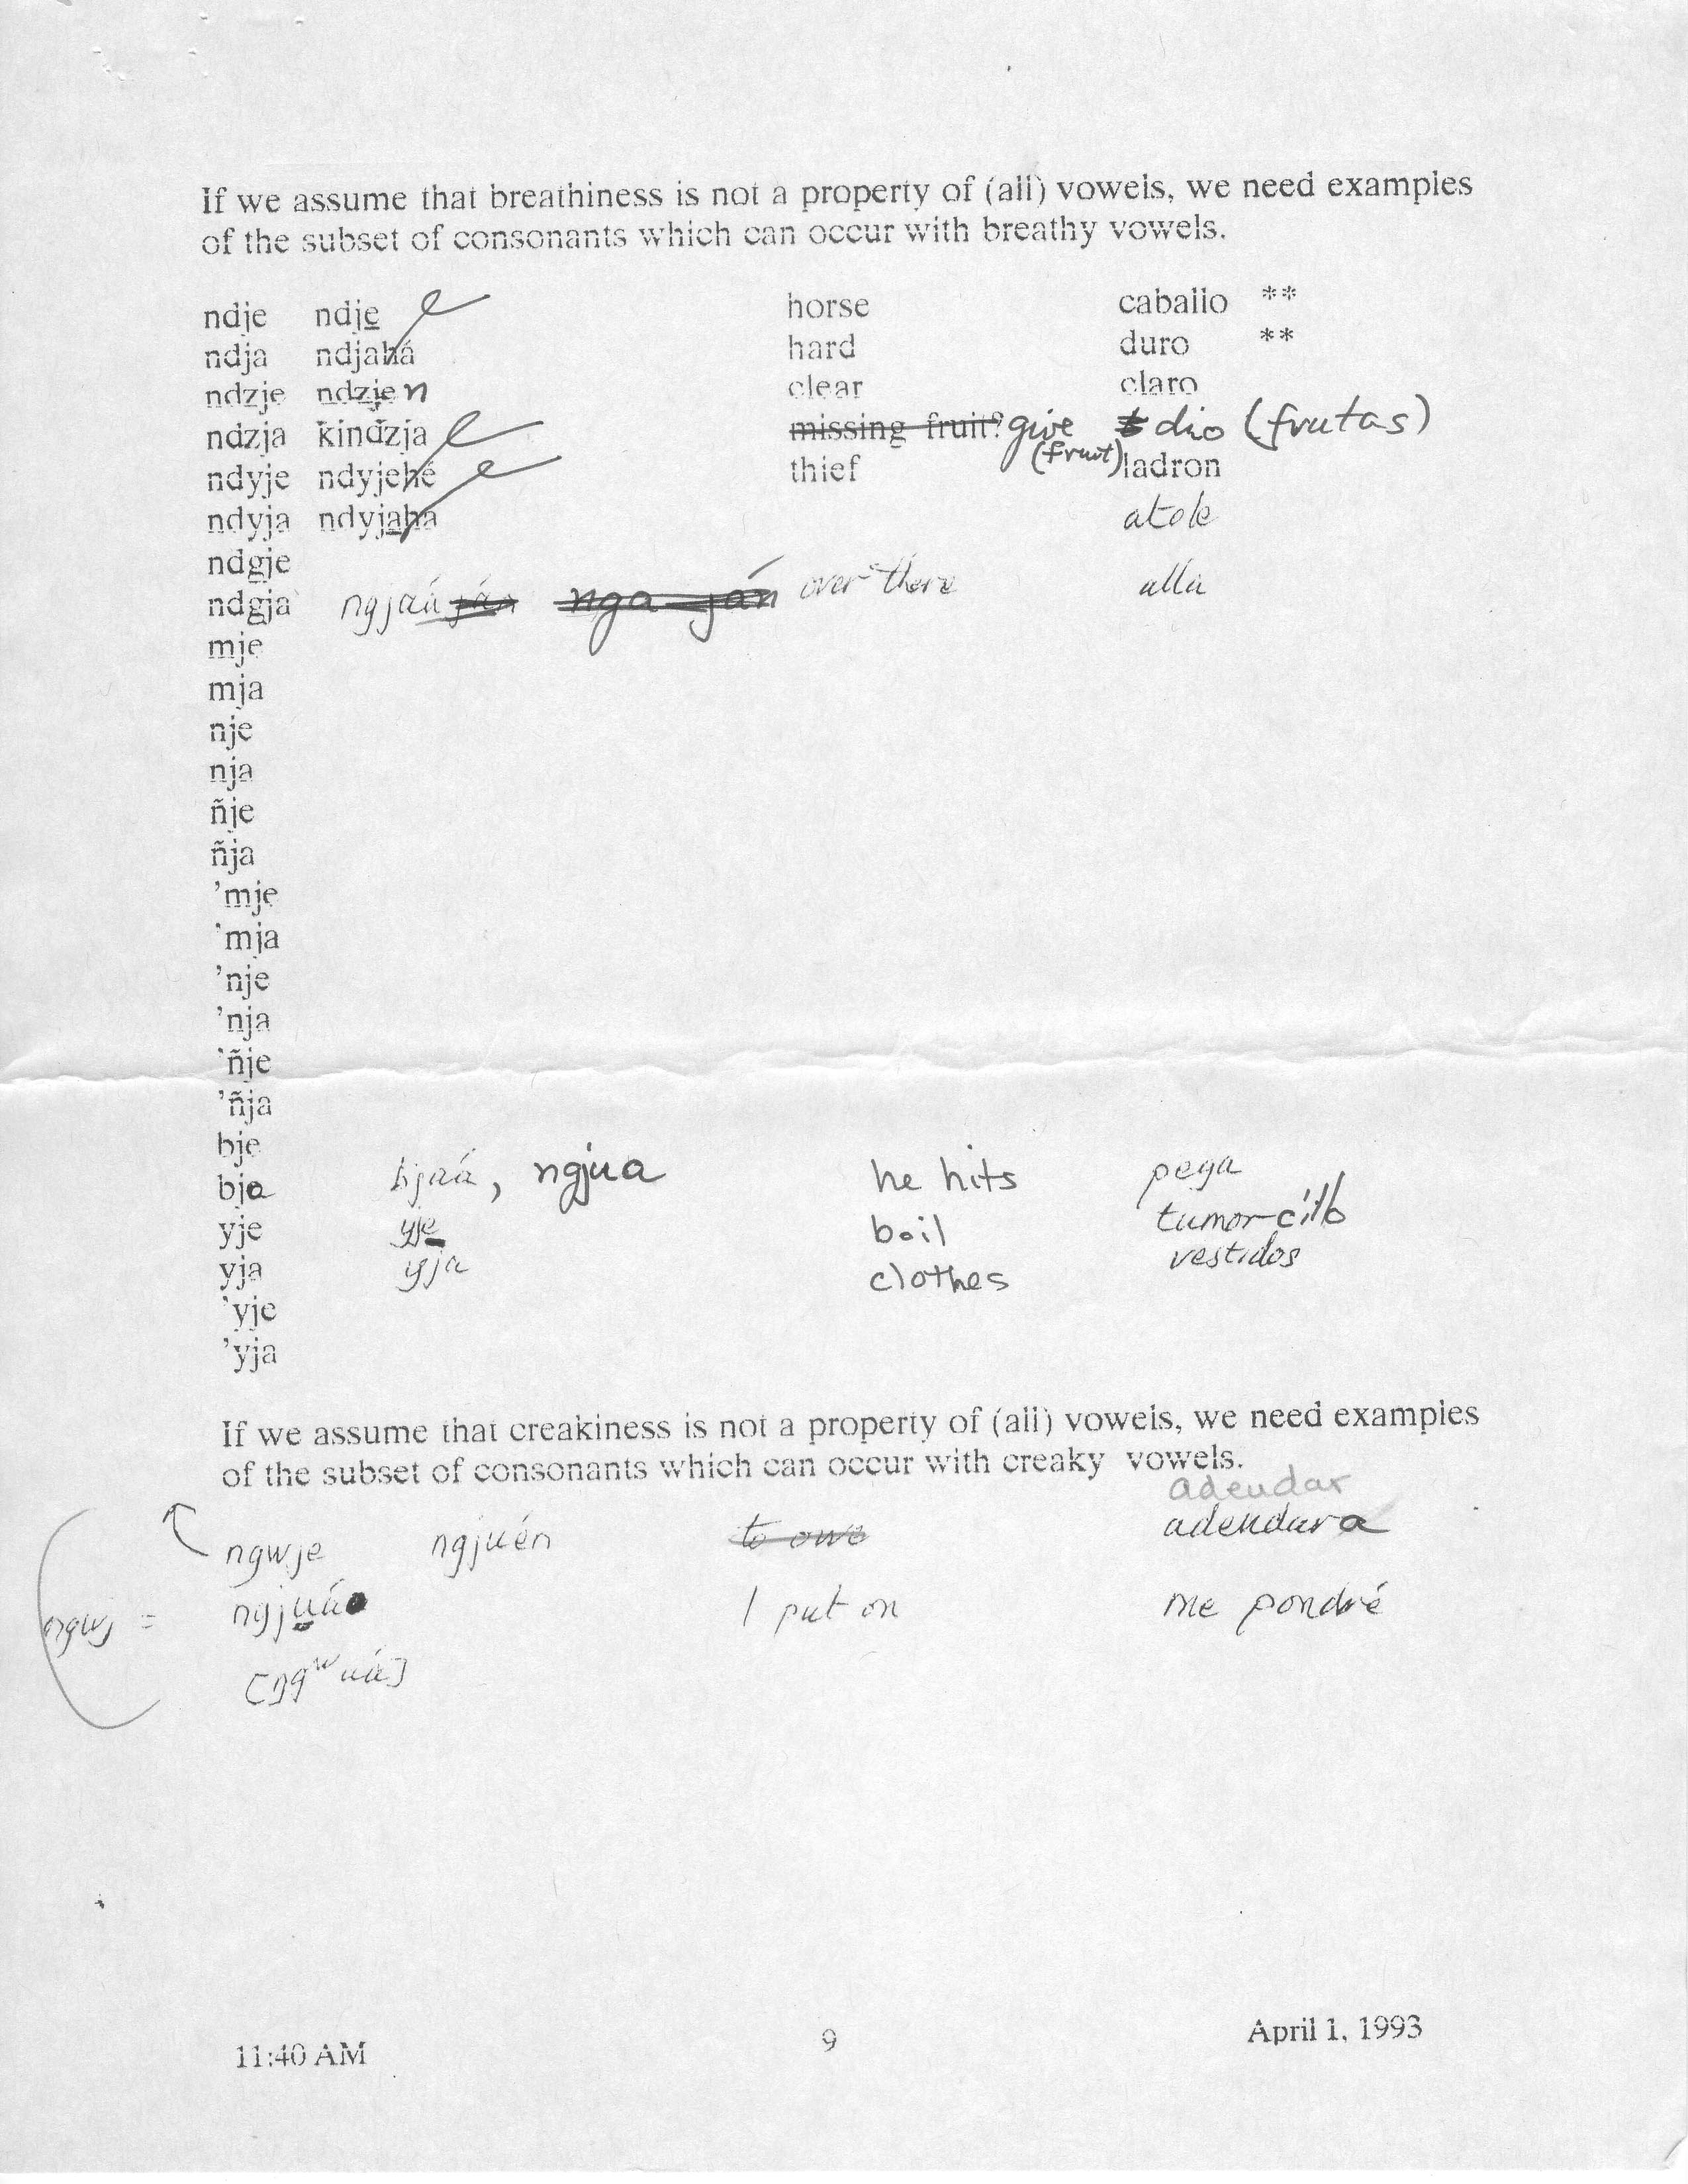 If we assume that breathiness is not a property of (all) vowels, we need examples
of the subset of consonants which can occur with breathy vowels.
ndje ndje horse caballo **
ndja ndjahá hard duro **
ndzje ndzjen clear claro
ndzja kindzja missing fruit? give (fruit) dio (frutas)
ndyje ndyjehé thief ladron
ndyja ndyjaha atole
ndgje
ndgja ngjaá ján nga ján over there alla
mje
mja
nje
nja
ñje
ñja
'mje
'mja
'nje
'nja
'ñje
'ñja
bje
bja bjaá, ngjua he hits pega
yje yje boil tumorcillo
yja yja clothes vestidos
'yje
'yja
If we assume that creakiness is not a property of (all) vowels, we need examples
of the subset of consonants which can occur with creaky vowels.
adeudar
ngwje ngjuén to owe adeudara
ngwj = ngjuá I put on me pondré
11:40 AM 9 April 1, 1993